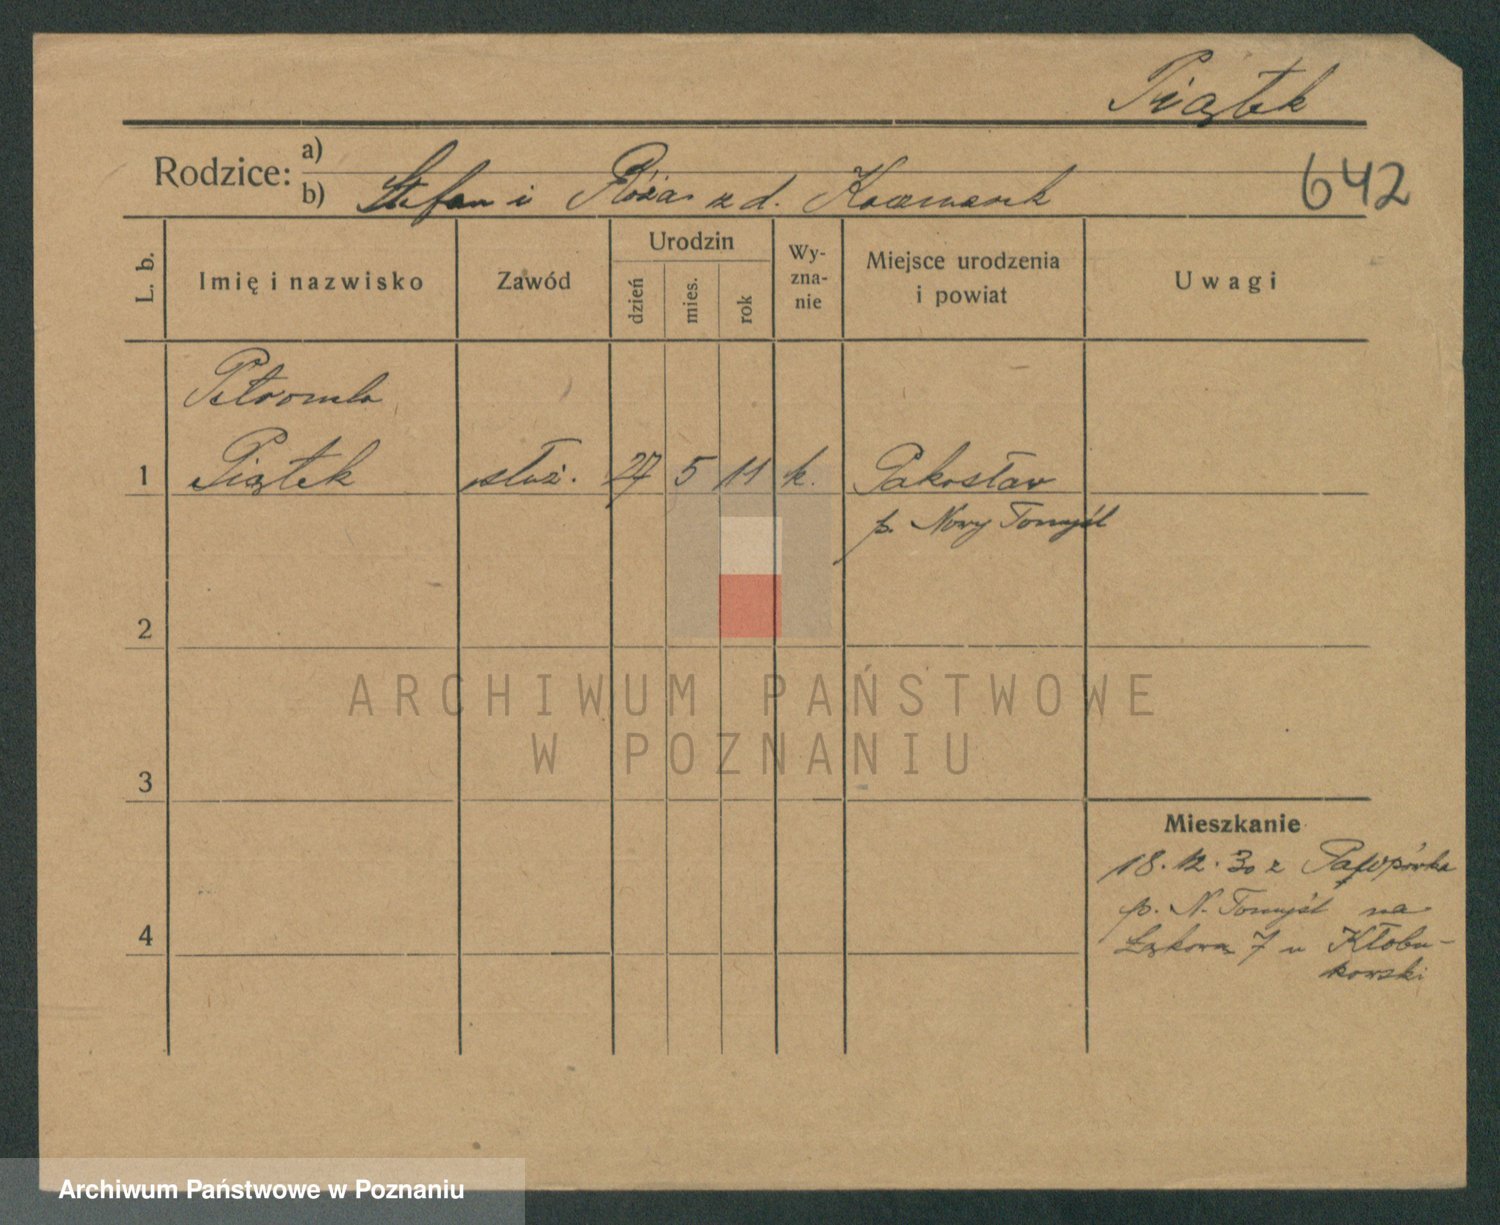 Piątek
Rodzice: a)
b) Stefan i Róża z d. Kaczmarek
642
L. b.
Imię i nazwisko
Zawód
Urodzin
dzień
mies.
rok
Wy-
zna-
nie
Miejsce urodzenia
i powiat
Uwagi
Petronela
1 Piątek służ. 27 5 11 k. Pakosław
p. Nowy Tomyśl
2
3
4
ARCHIWUM PAŃSTWOWE
W POZNANIU
Mieszkanie
18.12.30 z
p. N. Tomyśl na
Łąkowa 7 u Kłobu-
kowski
Archiwum Państwowe w Poznaniu